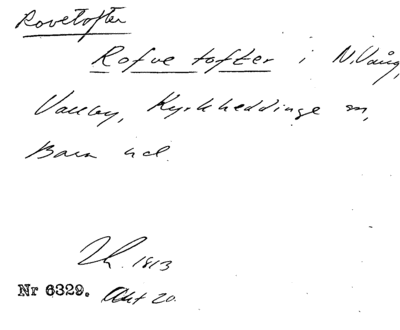 Rovetofter
Rofve tofter i N. Vång,
Vallby, Kyrkheddinge sn,
Bara hd.
1813
Nr 6329. Akt 20.